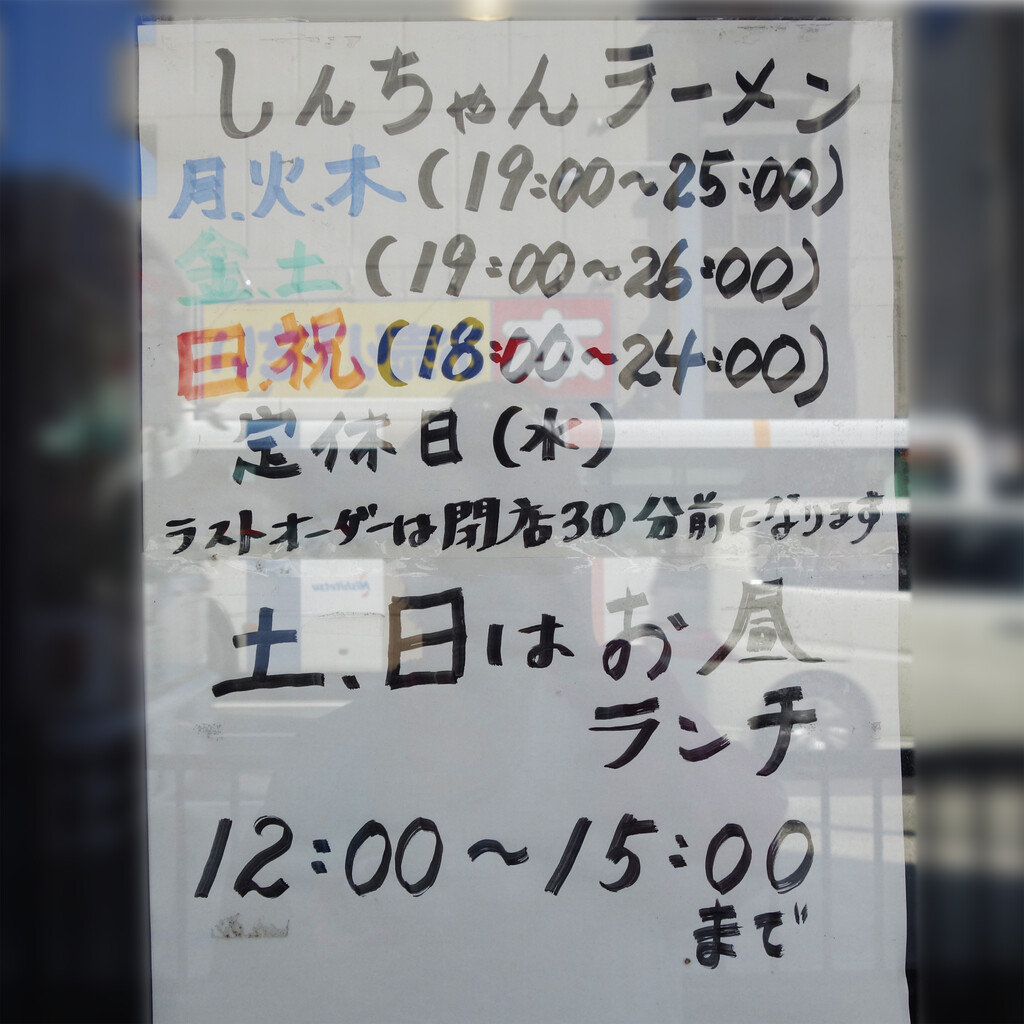 しんちゃんラーメン
月.火.木(19:00〜25:00)
金.土(19:00〜26:00)
日.祝(18:00〜24:00)
定休日(水)
ラストオーダーは閉店30分前になります
Nishitetsu
土、日はお昼
ランチ
12:00〜15:00
まで